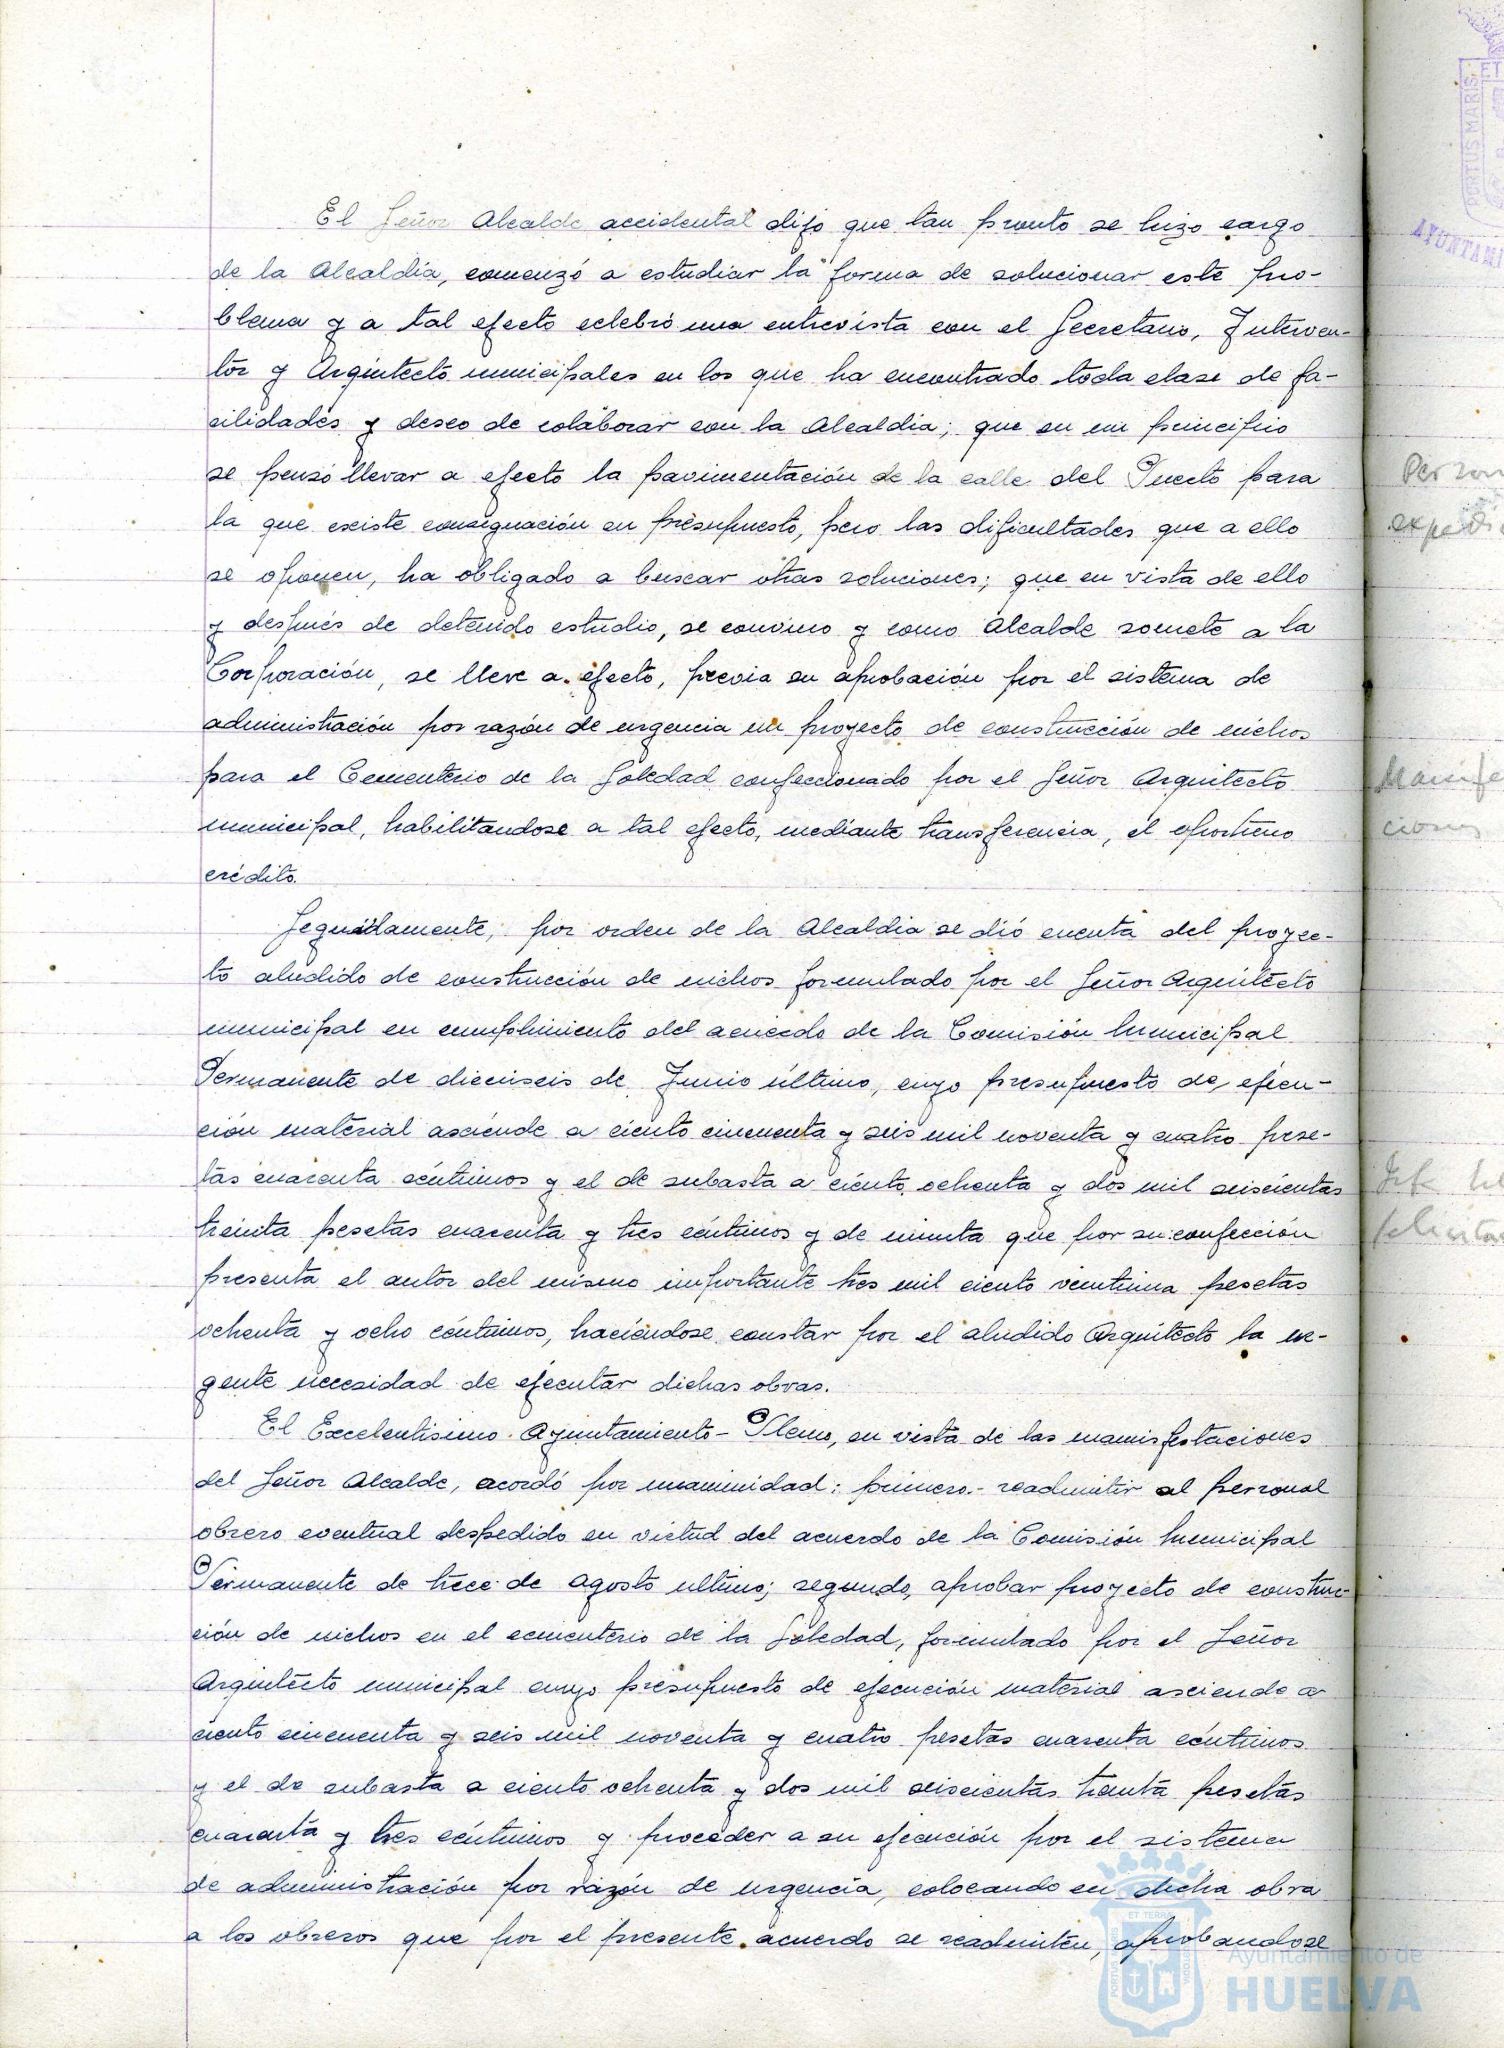 El Señor Alcalde accidental dijo que tan pronto se hizo cargo
de la Alcaldía, comenzó a estudiar la forma de solucionar este pro-
blema y a tal efecto celebró una entrevista con el Secretario, Interven-
tor y Arquitecto municipales en los que ha encontrado toda clase de fa-
cilidades y deseo de colaborar con la Alcaldía; que en un principio
se pensó llevar a efecto la pavimentación de la calle del Puerto para
la que existe consignación en presupuesto, pero las dificultades que a ello
se oponen, ha obligado a buscar otras soluciones; que en vista de ello
y después de detenido estudio, se convino y como Alcalde somete a la
Corporación, se lleve a efecto, previa su aprobación por el sistema de
administración por razón de urgencia un proyecto de construcción de nichos
para el Cementerio de la Soledad confeccionado por el Señor Arquitecto
municipal, habilitandose a tal efecto, mediante transferencia, el oportuno
crédito.
Seguidamente, por orden de la Alcaldia se dió cuenta del proyec-
to aludido de construcción de nichos formulado por el Señor Arquitecto
municipal en cumplimiento del acuerdo de la Comisión Municipal
Permanente de dieciseis de Junio último, cuyo presupuesto de ejecu-
ción material asciende a ciento cincuenta y seis mil noventa y cuatro pese-
tas cuarenta céntimos y el de subasta a ciento ochenta y dos mil seiscientas
treinta pesetas cuarenta y tres céntimos y de minuta que por su confección
presenta el autor del mismo importante tres mil ciento veintiuna pesetas
ochenta y ocho céntimos, haciéndose constar por el aludido Arquitecto la ur-
gente necesidad de ejecutar dichas obras.
El Excelentisimo Ayuntamiento-Pleno, en vista de las manisfestaciones
del Señor Alcalde, acordó por unanimidad: primero.- readmitir al personal
obrero eventual despedido en virtud del acuerdo de la Comisión Municipal
Permanente de trece de Agosto ultimo; segundo, aprobar proyecto de construc-
ción de nichos en el cementerio de la Soledad, formulado por el Señor
Arquitecto municipal cuyo presupuesto de ejecución material asciende a
ciento cincuenta y seis mil noventa y cuatro pesetas cuarenta céntimos
y el de subasta a ciento ochenta y dos mil seiscientas treinta pesetas
cuarenta y tres céntimos y proceder a su ejecución por el sistema
de administración por razón de urgencia, colocando en dicha obra
a los obreros que por el presente acuerdo se readmiten, aprobandose
PORTUS MARIS
ET
AYUNTAMI
Person
expedi
Manife
ciones
ET TERRA
Ayuntamiento de
HUELVA